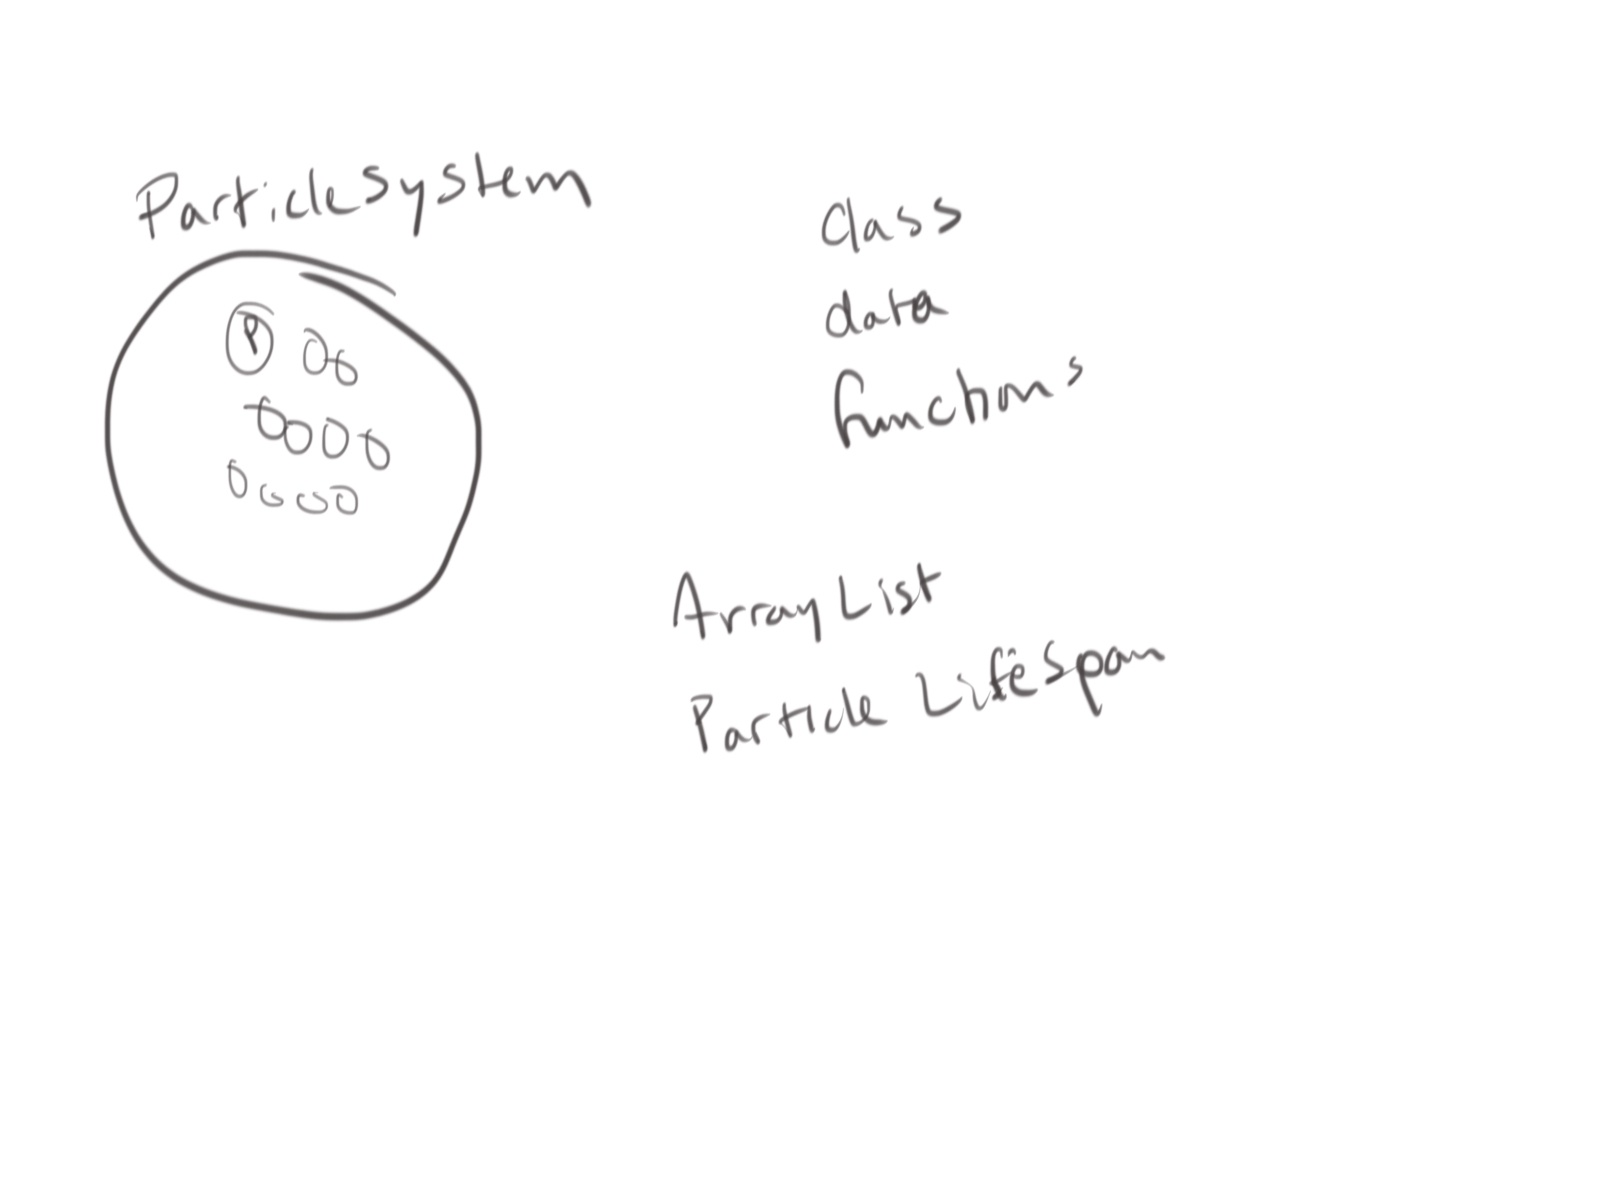 ParticleSystem
P
Class
data
functions
ArrayList
Particle LifeSpan